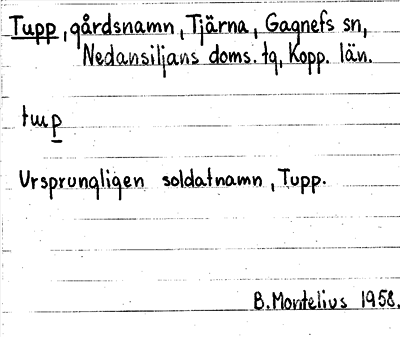 Tupp, gårdsnamn, Tjärna, Gagnefs sn,
Nedansiljans doms. tg, Kopp. län.
tup
Ursprungligen soldatnamn, Tupp.
B. Montelius 1958.